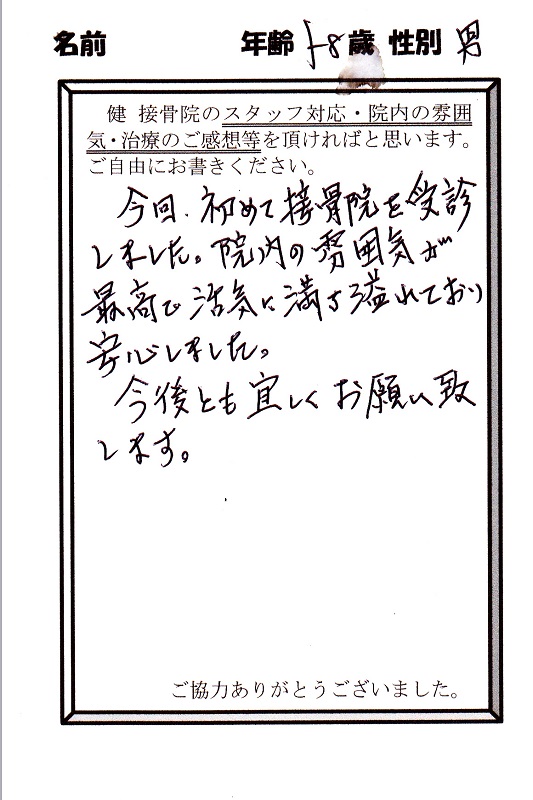 名前 年齢 58歳 性別 男
健 接骨院のスタッフ対応・院内の雰囲
気・治療のご感想等を頂ければと思います。
ご自由にお書きください。
今回、初めて接骨院を受診
しました。院内の雰囲気が
最高で活気に満ち溢れており
安心しました。
今後とも宜しくお願い致
します。
ご協力ありがとうございました。